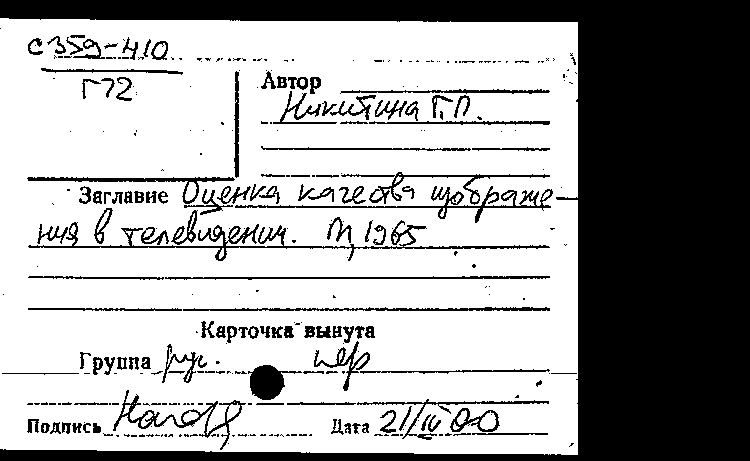 с359-410
Г72
Автор
Никитина Г.П.
Заглавие Оценка качества изображе-
ния в телевидении. М, 1965
Карточка вынута
Группа рус. пер
Подпись
Дата 21/IV 00